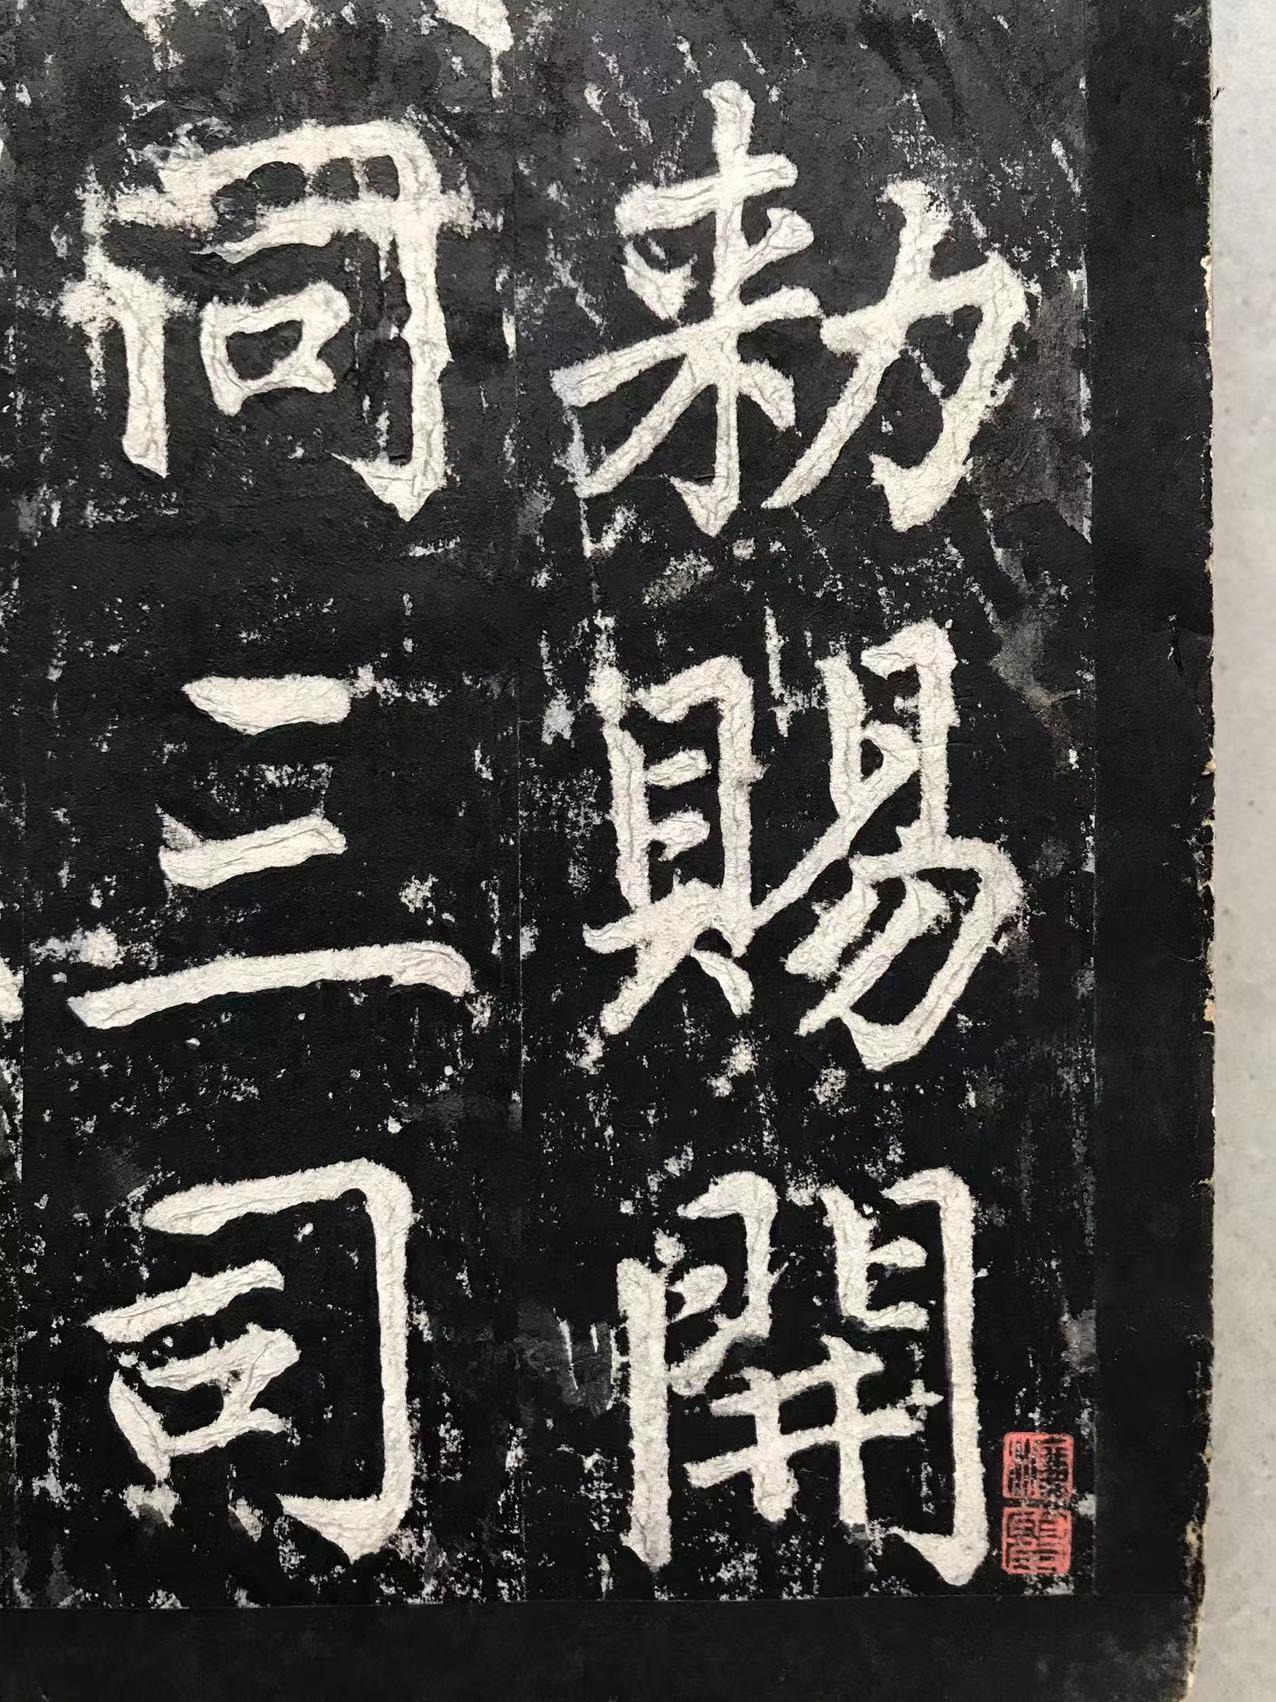 勑賜開
同三司